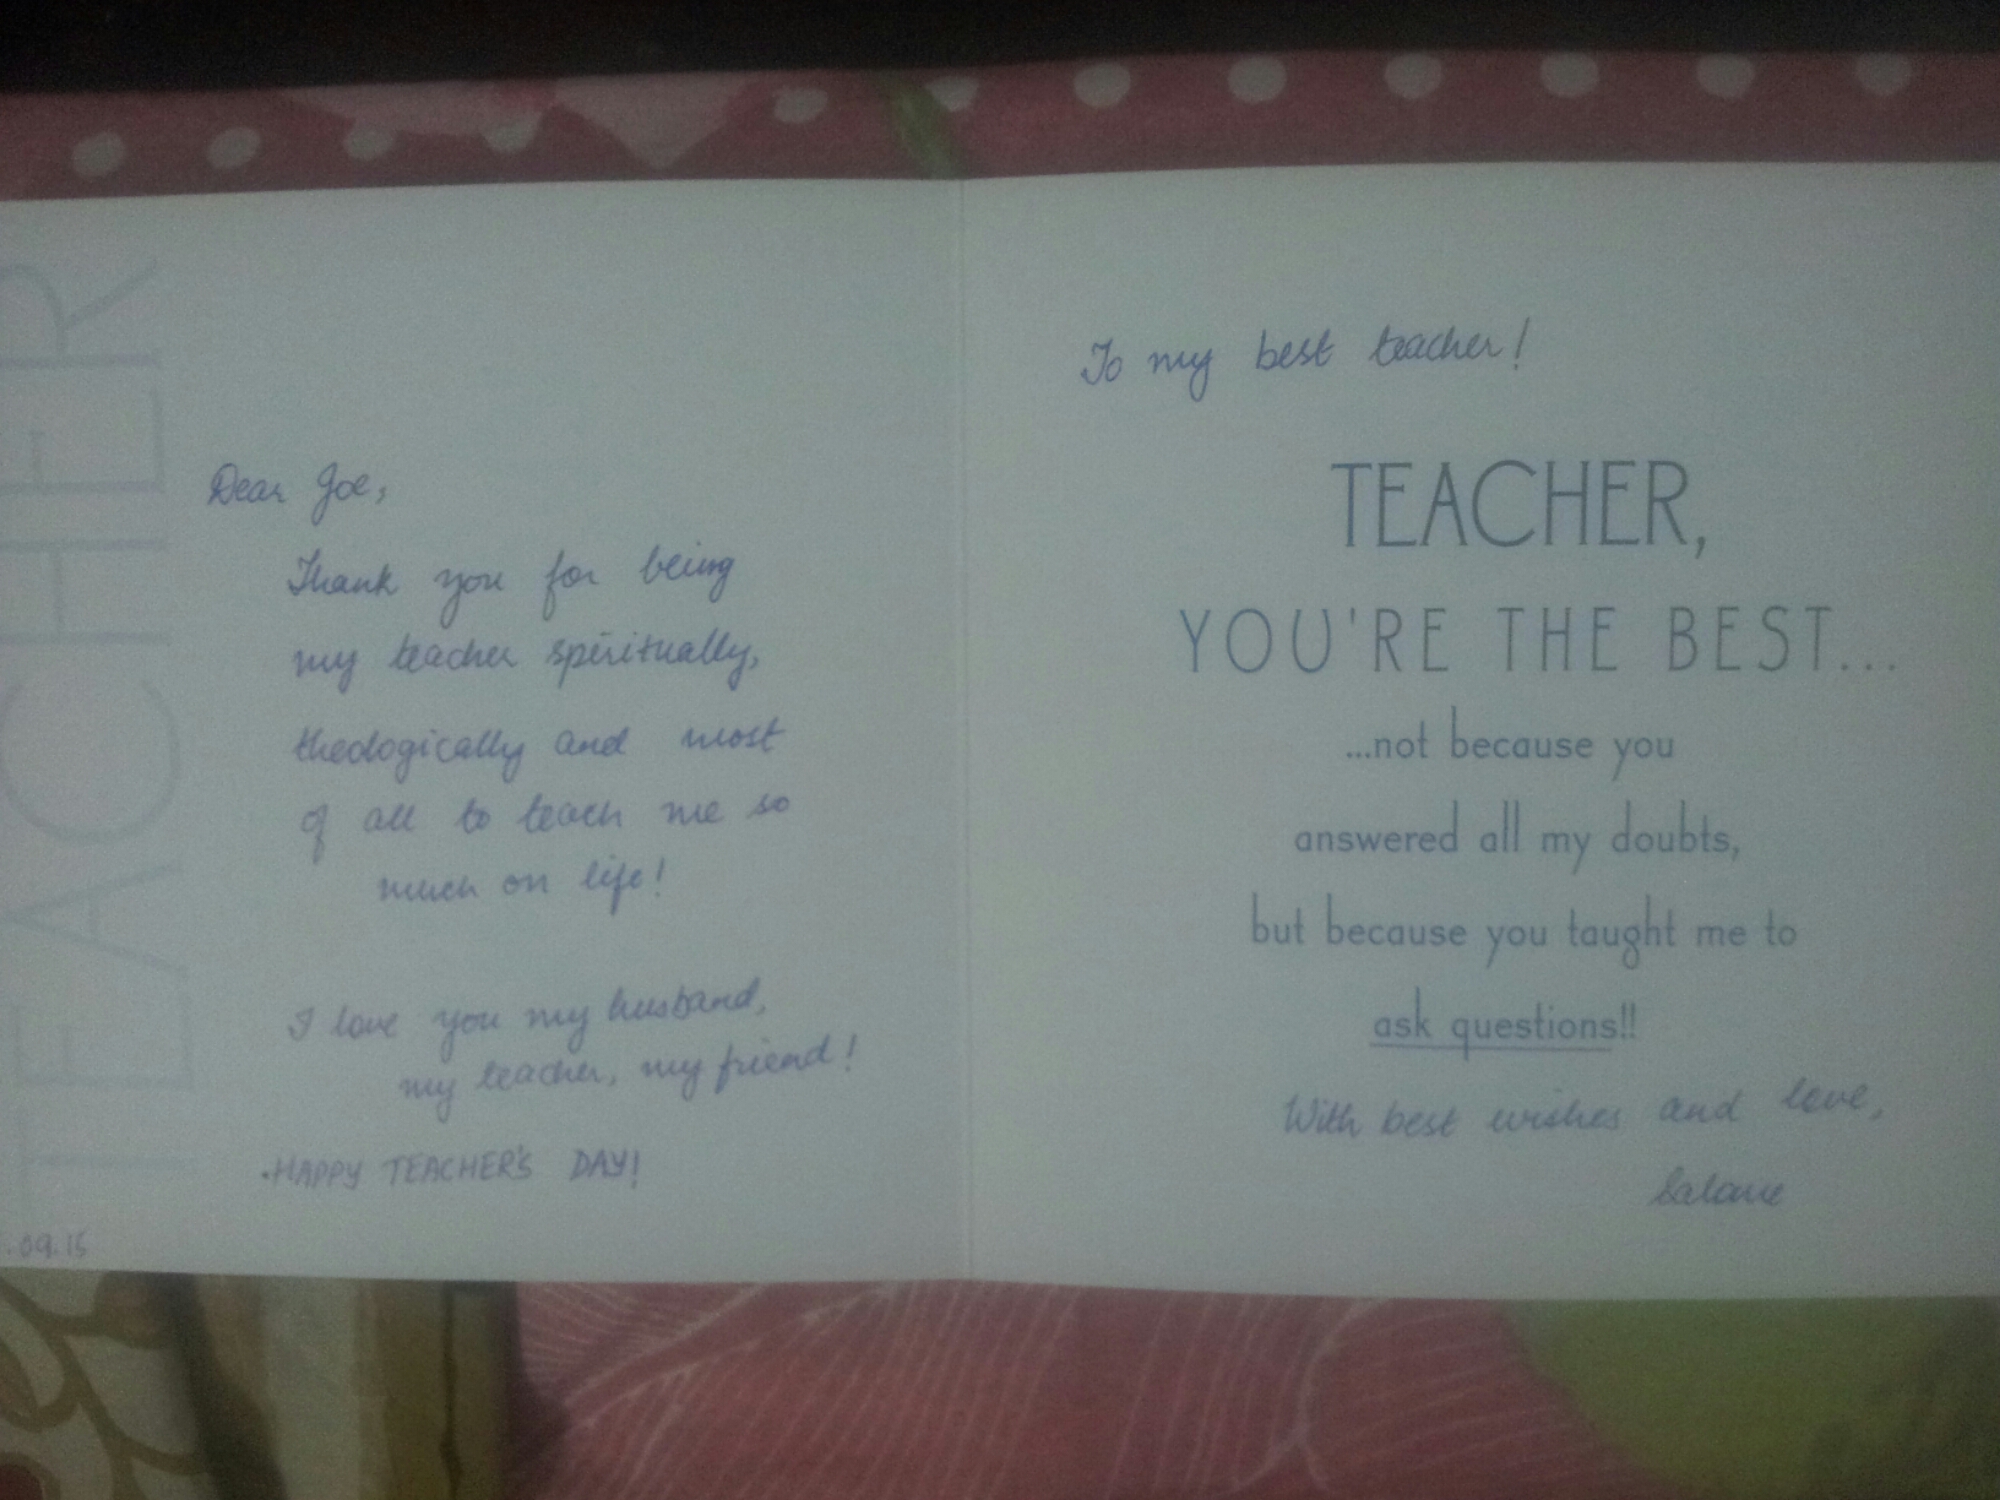 TEACHER
Dear Joe,
Thank you for being
my teacher spiritually,
theologically and most
of all to teach me so
much on life!
I love you my husband,
my teacher, my friend!
HAPPY TEACHER'S DAY!
.09.15
To my best teacher!
TEACHER,
YOU'RE THE BEST...
...not because you
answered all my doubts,
but because you taught me to
ask questions!!
With best wishes and love,
Salome